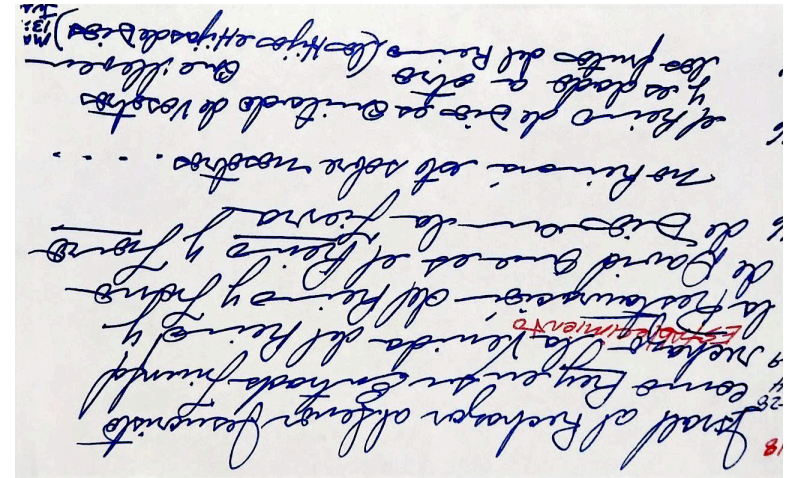 Israel al Rechazar al Señor Jesucristo
como Rey en su entrada triunfal
rechazo la Venida del Reino y
ESTABLECIMIENTO
la Restauración del Reino y Trono
de David que es el Reino y Trono
de Dios en la tierra
no Reinará este sobre nosotros . . . .
el Reino de Dios es quitado de vosotros
y es dado a otro que lleven
los frutos del Reino (los Hijos e Hijas de Dios)